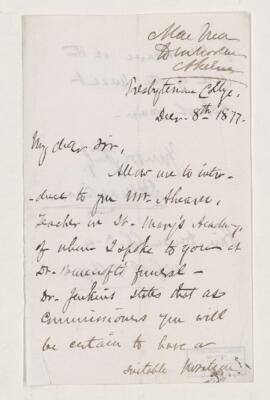 Presbyterian Collge.
Decr. 8th 1877.
My dear Sir,
Allow me to intro-
-duce to you Mr. Ahearn,
Teacher in St. Mary's Academy,
of whom I spoke to you at
Dr. Bancroft's funeral –
Dr. Jenkins states that as
Commissioners you will
be certain to have a
suitable